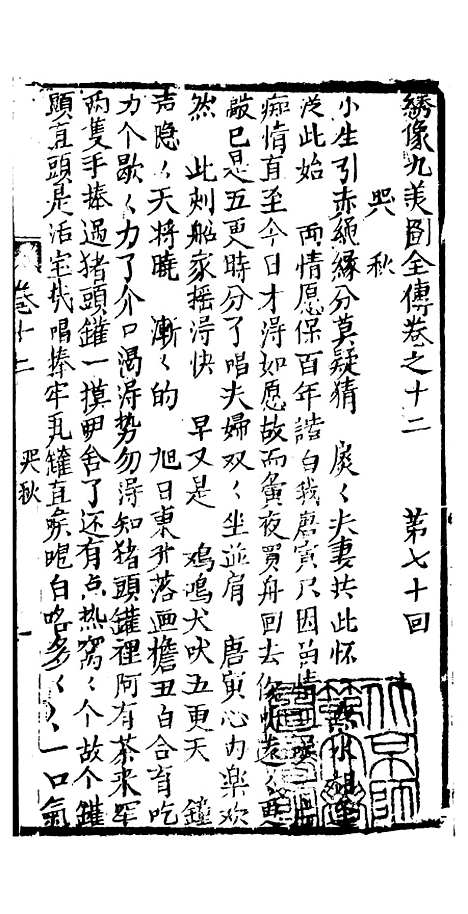 綉像九美圖全傳卷之十二　第七十回
哭秋
小生引赤繩緣分莫疑猜　夫妻共此怀
從此始　两情愿保百年諧白我唐寅只因
痴情直至今日才淂如愿故而夤夜買舟回去
敲已是五更時分了唱夫婦双〻坐並肩　唐寅心内樂欢
然　此刻船家摇淂快　早又是　鸡鳴犬吠五更天　鐘
声隐〻天将曉　漸〻的　旭日東升落画檐丑白合有吃
力个歇〻力了介口渴淂势勿淂知猪頭鑵裡阿有茶来
两隻手捧過猪頭鑵一摸舍了还有点热窩〻个故个鑵
頭直頭是活宝哉唱捧牢鑵直白咯多〻〻〻一口氣
卷十二　哭秋　一